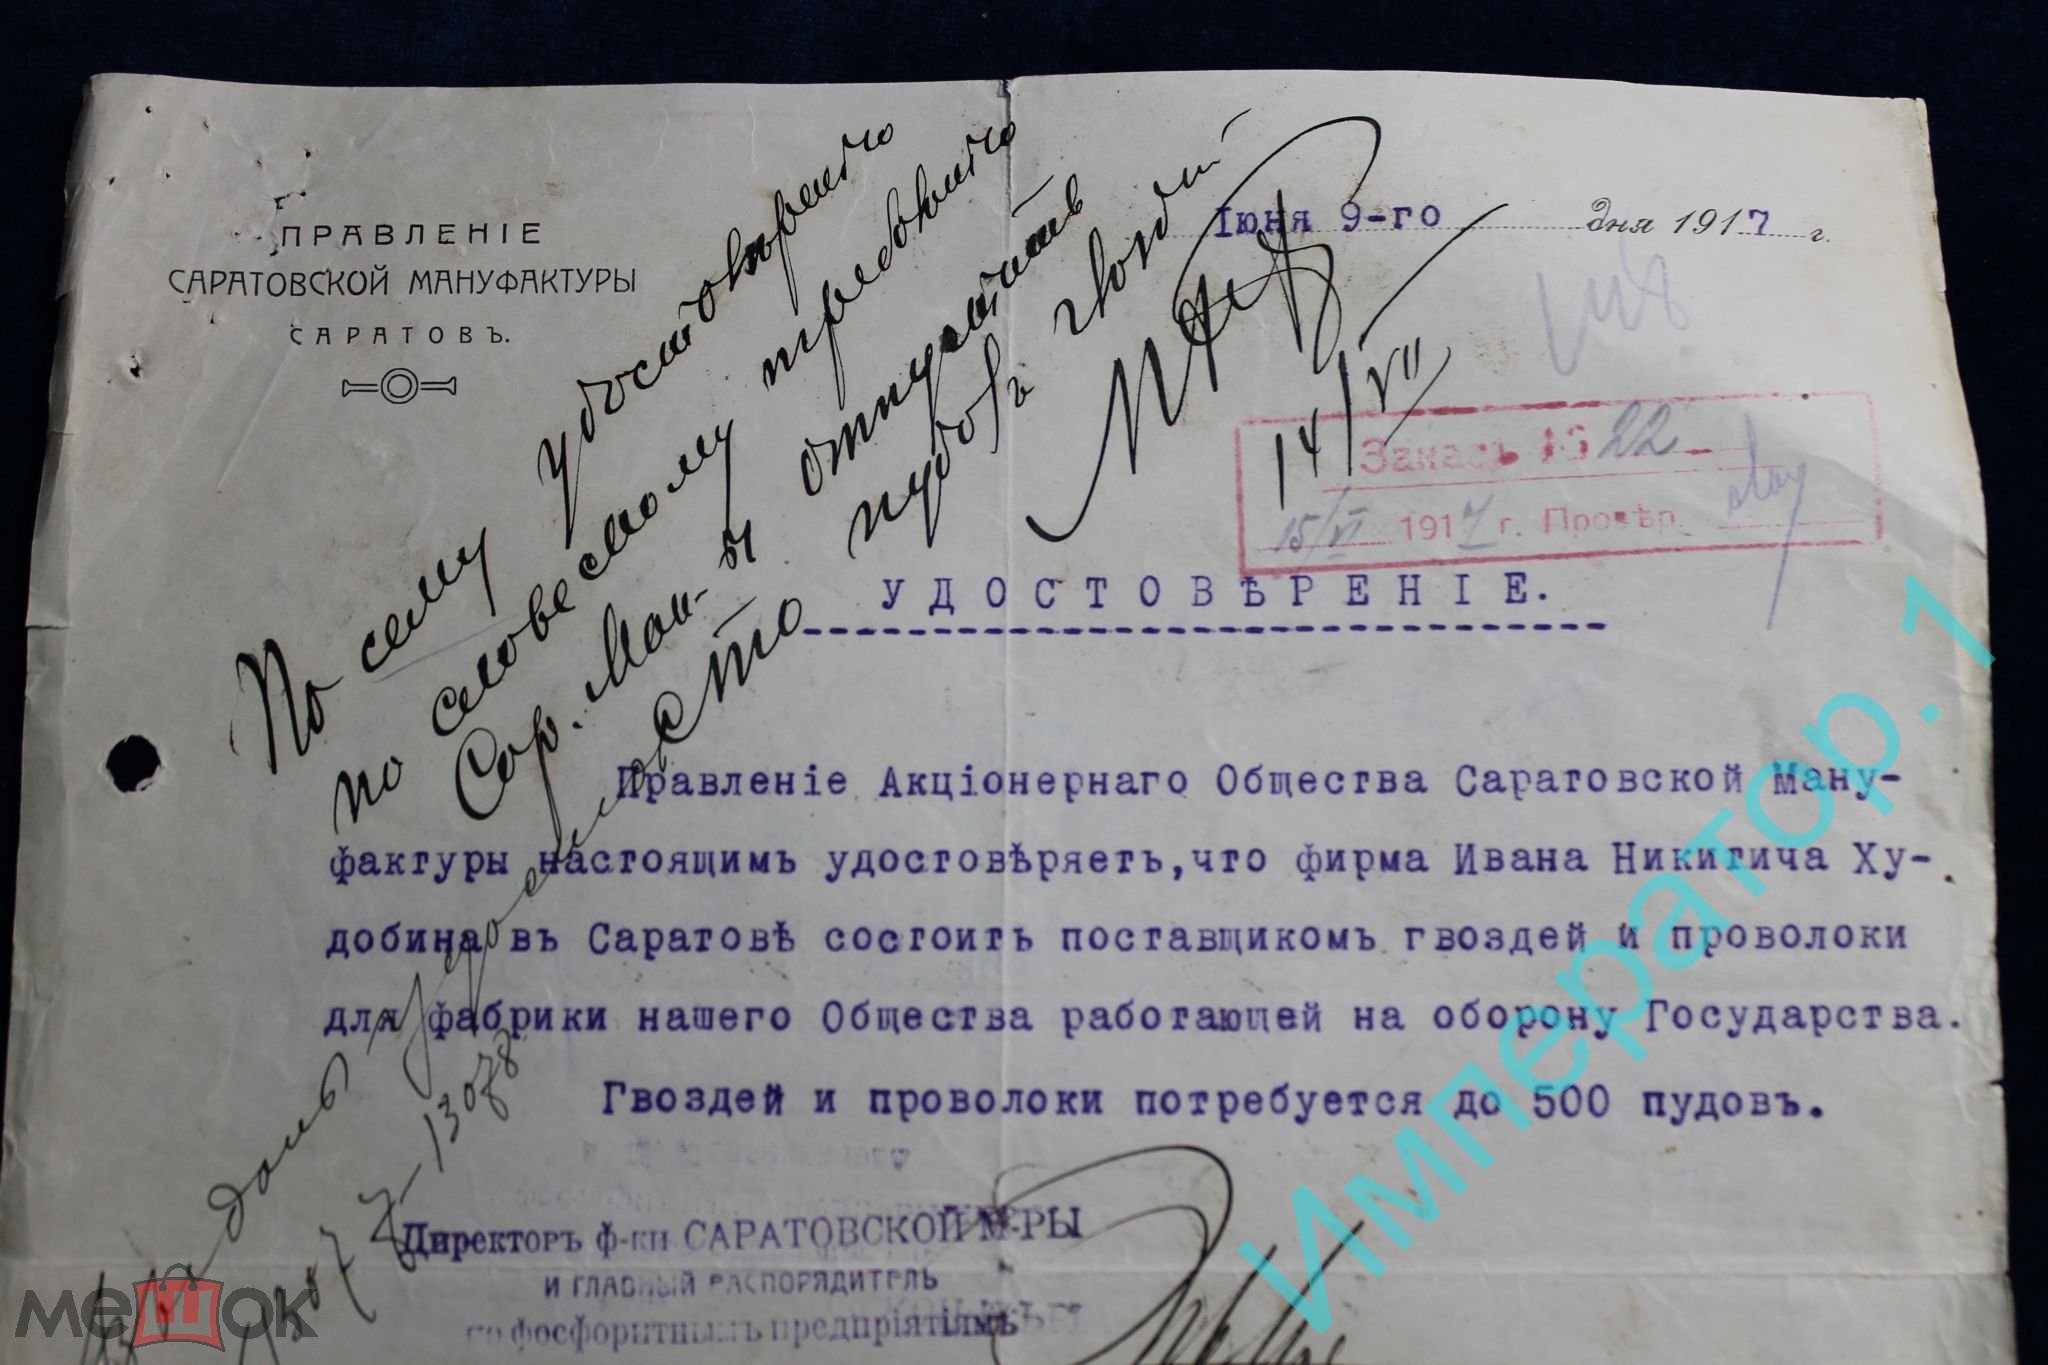 ПРАВЛЕНІЕ
САРАТОВСКОЙ МАНУФАКТУРЫ
САРАТОВЪ.
Іюня 9-го дня 1917 г.
По сему удостоверению
по словесному требованию
Сар. Ман-ы отпустить
сто пудовъ гвоздей
14/VII
Заказъ 1622
15/VI 1917 г. Провѣр.
УДОСТОВѢРЕНІЕ.
Правленіе Акціонернаго Общества Саратовской Ману-
фактуры настоящимъ удостовѣряетъ,что фирма Ивана Никитича Ху-
добина въ Саратовѣ состоитъ поставщикомъ гвоздей и проволоки
для фабрики нашего Общества работающей на оборону Государства.
Гвоздей и проволоки потребуется до 500 пудовъ.
Директоръ ф-ки САРАТОВСКОЙ М-РЫ
И ГЛАВНЫЙ РАСПОРЯДИТЕЛЬ
по фосфоритнымъ предпріятіямъ
13078
Император.1
мешок